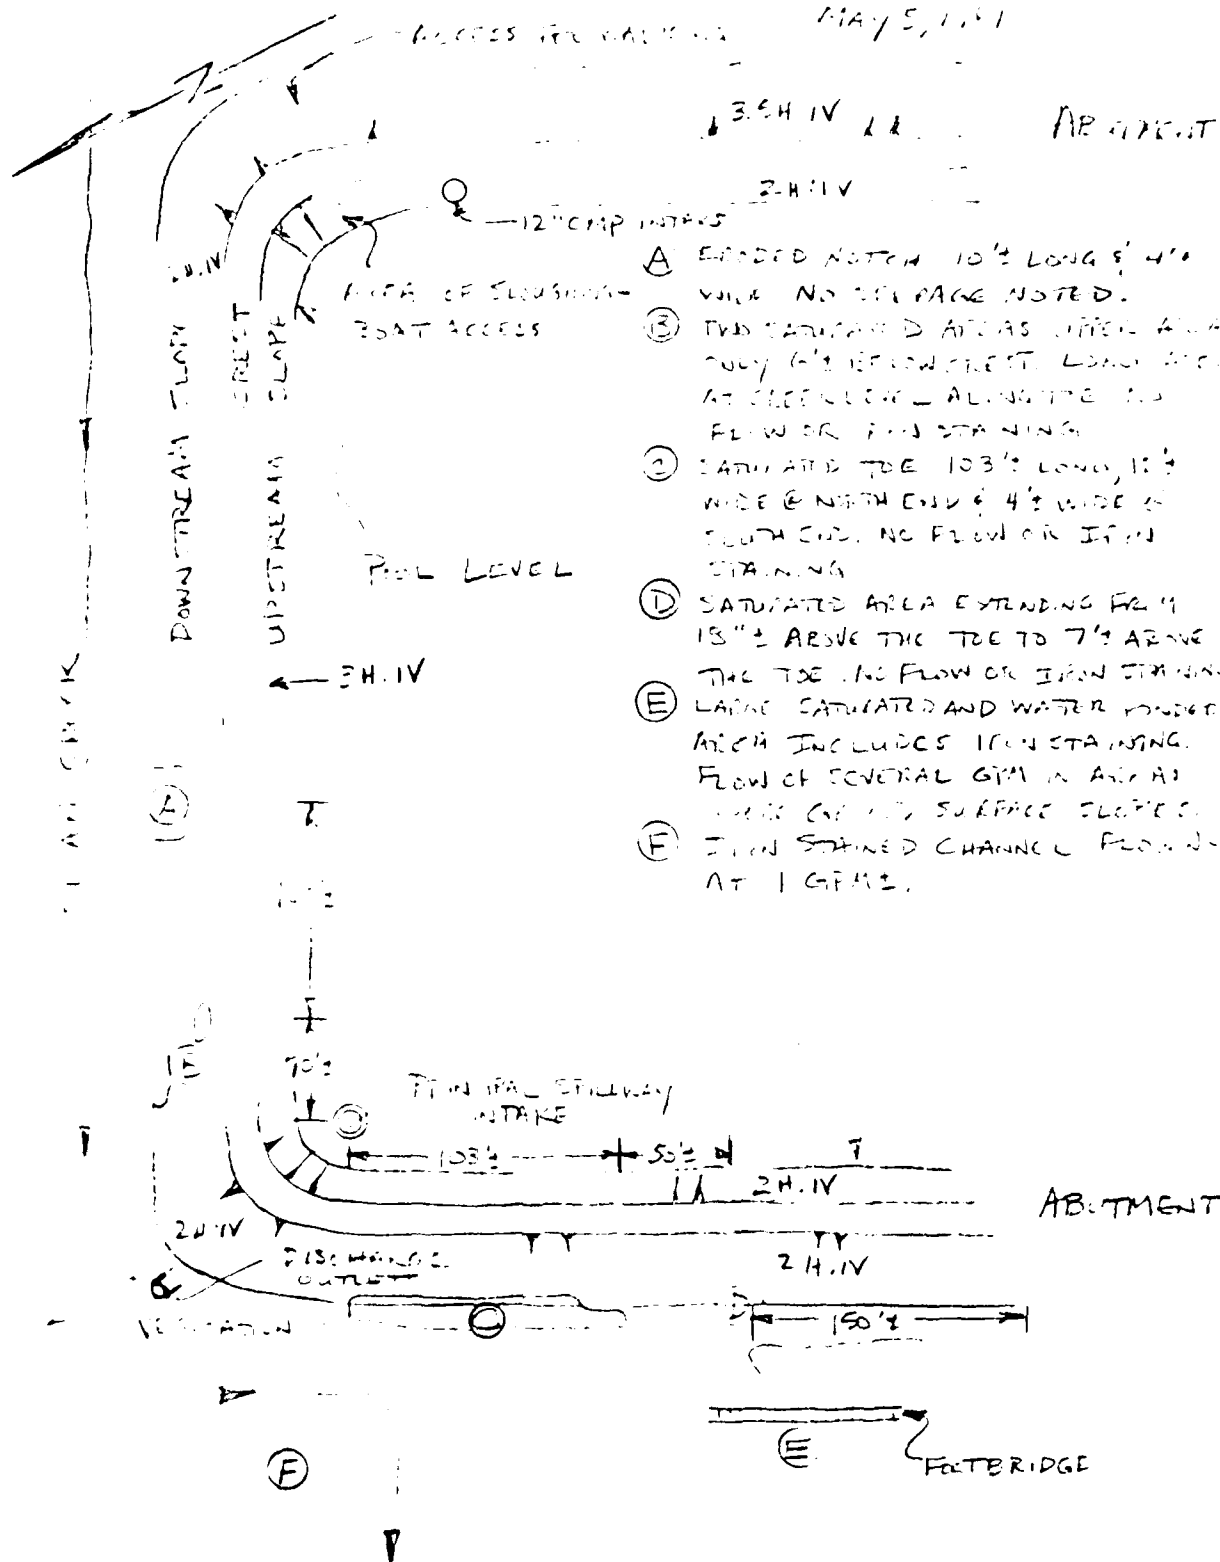 ACCESS FOR WALKING
MAY 5,
3.5H.1V
ABUTMENT
2H.1V
12" CMP INTAKE
2H.1V
AREA OF SLOUGHING
BOAT ACCESS
DOWNSTREAM SLOPE
CREST
UPSTREAM SLOPE
POOL LEVEL
3H.1V
A ERODED NOTCH 10'± LONG & 4'±
WIDE NO SEEPAGE NOTED.
B TWO SATURATED AREAS UPPER AREA
ONLY 6'± BELOW CREST.
AT CREEK LEVEL ALONG TOE NO
FLOW OR IRON STAINING
SATURATED TOE 103'± LONG, 12'±
WIDE @ NORTH END & 4'± WIDE @
SOUTH END. NO FLOW OR IRON
STAINING
D SATURATED AREA EXTENDING FROM
18"± ABOVE THE TOE TO 7'± ABOVE
THE TOE. NO FLOW OR IRON STAINING
E LARGE SATURATED AND WATER PONDED
AREA INCLUDES IRON STAINING.
FLOW OF SEVERAL GPM IN AREAS
SURFACE SLOPES.
F IRON STAINED CHANNEL FLOWING
AT 1 GPM±.
A
B
70'±
PRINCIPAL SPILLWAY
INTAKE
103'±
50'±
2H.1V
ABUTMENT
2H.1V
2H.1V
DISCHARGE
OUTLET
VEGETATION
C
D
150'±
E
F
FOOTBRIDGE